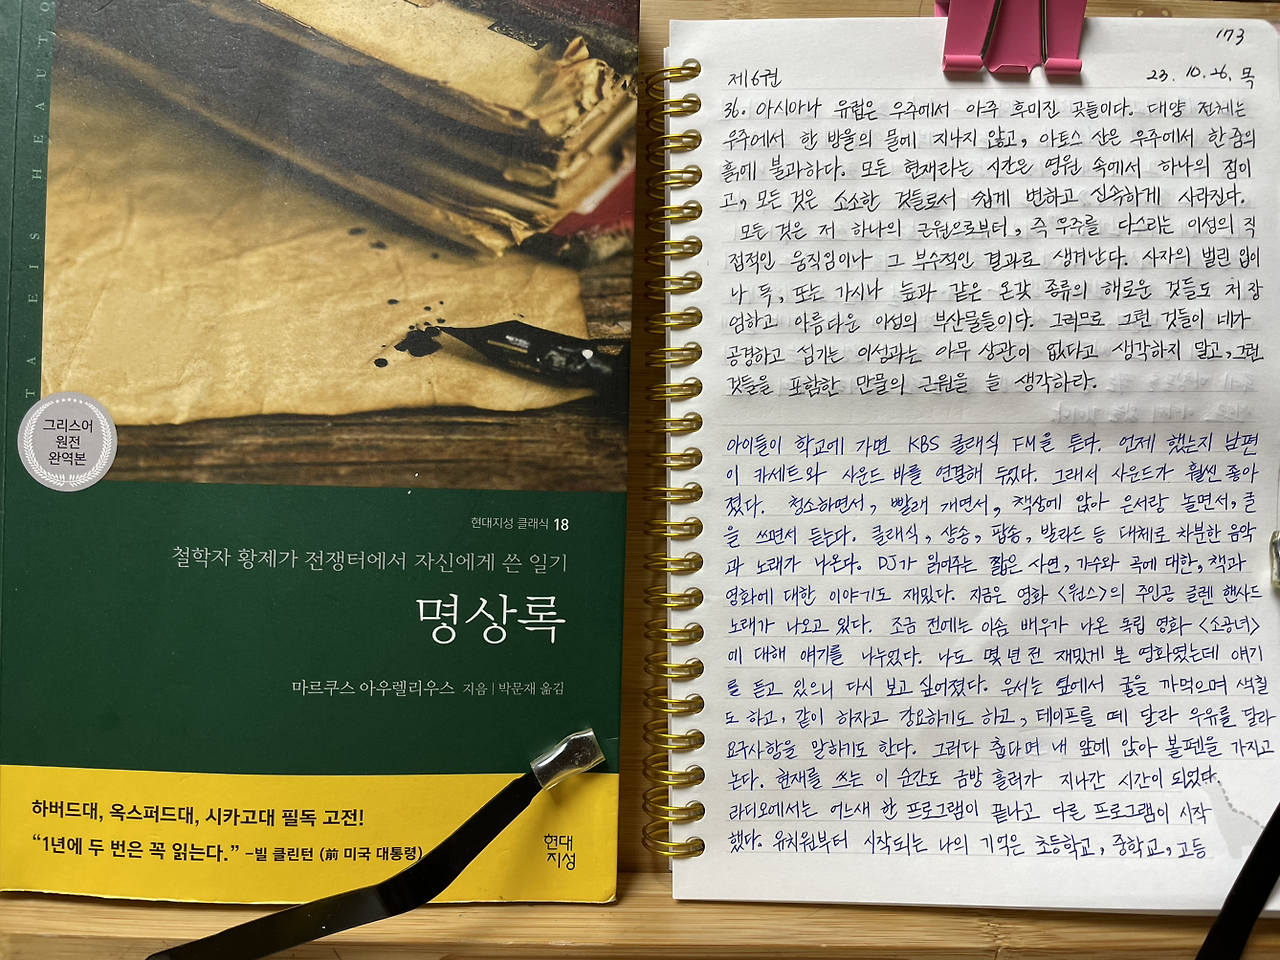 TA EIS HEAUTO
그리스어
원전
완역본
현대지성 클래식 18
철학자 황제가 전쟁터에서 자신에게 쓴 일기
명상록
마르쿠스 아우렐리우스 지음 | 박문재 옮김
하버드대, 옥스퍼드대, 시카고대 필독 고전!
“1년에 두 번은 꼭 읽는다.” –빌 클린턴 (前 미국 대통령)
현대
지성
173
제6권 23. 10. 26. 목
36. 아시아나 유럽은 우주에서 아주 후미진 곳들이다. 대양 전체는
우주에서 한 방울의 물에 지나지 않고, 아토스 산은 우주에서 한 줌의
흙에 불과하다. 모든 현재라는 시간은 영원 속에서 하나의 점이
고, 모든 것은 소소한 것들로서 쉽게 변하고 신속하게 사라진다.
모든 것은 저 하나의 근원으로부터, 즉 우주를 다스리는 이성의 직
접적인 움직임이나 그 부수적인 결과로 생겨난다. 사자의 벌린 입이
나 독, 또는 가시나 늪과 같은 온갖 종류의 해로운 것들도 저 장
엄하고 아름다운 이성의 부산물들이다. 그러므로 그런 것들이 네가
공경하고 섬기는 이성과는 아무 상관이 없다고 생각하지 말고, 그런
것들을 포함한 만물의 근원을 늘 생각하라.
아이들이 학교에 가면 KBS 클래식 FM을 튼다. 언제 했는지 남편
이 카세트와 사운드 바를 연결해 두었다. 그래서 사운드가 훨씬 좋아
졌다. 청소하면서, 빨래 개면서, 책상에 앉아 은서랑 놀면서, 글
을 쓰면서 듣는다. 클래식, 샹송, 팝송, 발라드 등 대체로 차분한 음악
과 노래가 나온다. DJ가 읽어주는 짧은 사연, 가수와 곡에 대한, 책과
영화에 대한 이야기도 재밌다. 지금은 영화 <원스>의 주인공 글렌 핸사드
노래가 나오고 있다. 조금 전에는 이솜 배우가 나온 독립 영화 <소공녀>
에 대해 얘기를 나누었다. 나도 몇 년 전 재밌게 본 영화였는데 얘기
를 듣고 있으니 다시 보고 싶어졌다. 은서는 옆에서 귤을 까먹으며 색칠
도 하고, 같이 하자고 강요하기도 하고, 테이프를 떼 달라 우유를 달라
요구사항을 말하기도 한다. 그러다 춥다며 내 앞에 앉아 볼펜을 가지고
논다. 현재를 쓰는 이 순간도 금방 흘러가 지나간 시간이 되었다.
라디오에서는 어느새 한 프로그램이 끝나고 다른 프로그램이 시작
했다. 유치원부터 시작되는 나의 기억은 초등학교, 중학교, 고등